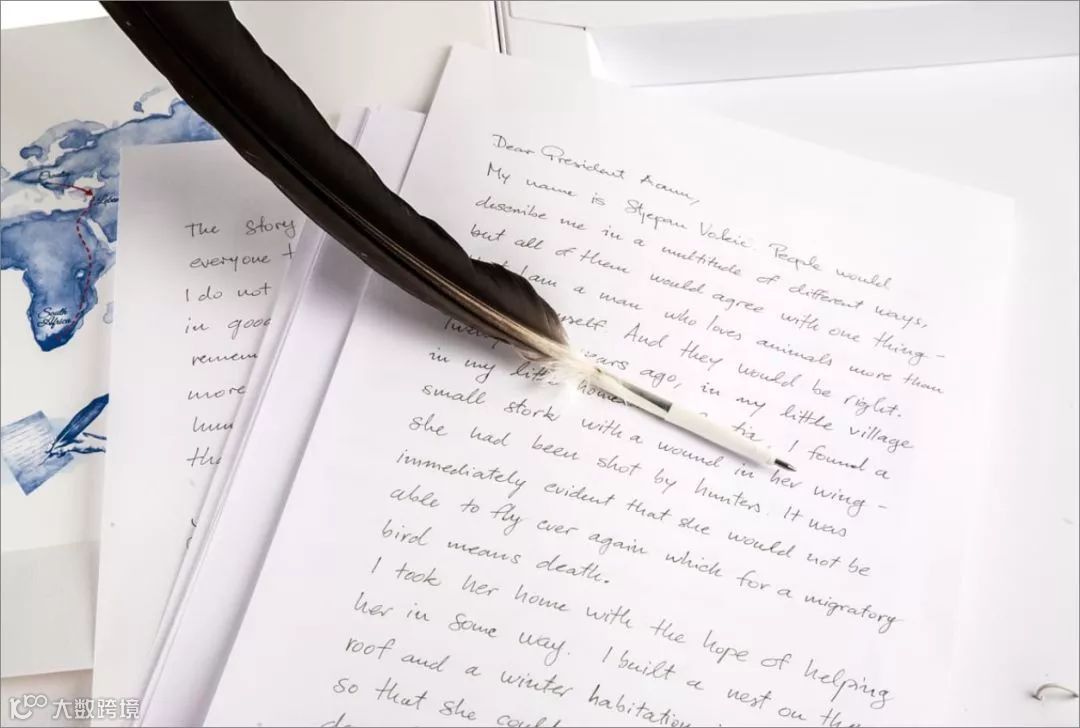 Dear President Aoun,
My name is Stjepan Vokić. People would
describe me in a multitude of different ways,
but all of them would agree with one thing -
I am a man who loves animals more than
myself. And they would be right.
years ago, in my little village
in my little home I found a
small stork with a wound in her wing -
she had been shot by hunters. It was
immediately evident that she would not be
able to fly ever again which for a migratory
bird means death.
I took her home with the hope of helping
her in some way. I built a nest on the
roof and a winter habitation
so that she could
The story
everyone t
I do not
in good
remem
more
hum
tha
South
Africa
大数跨境